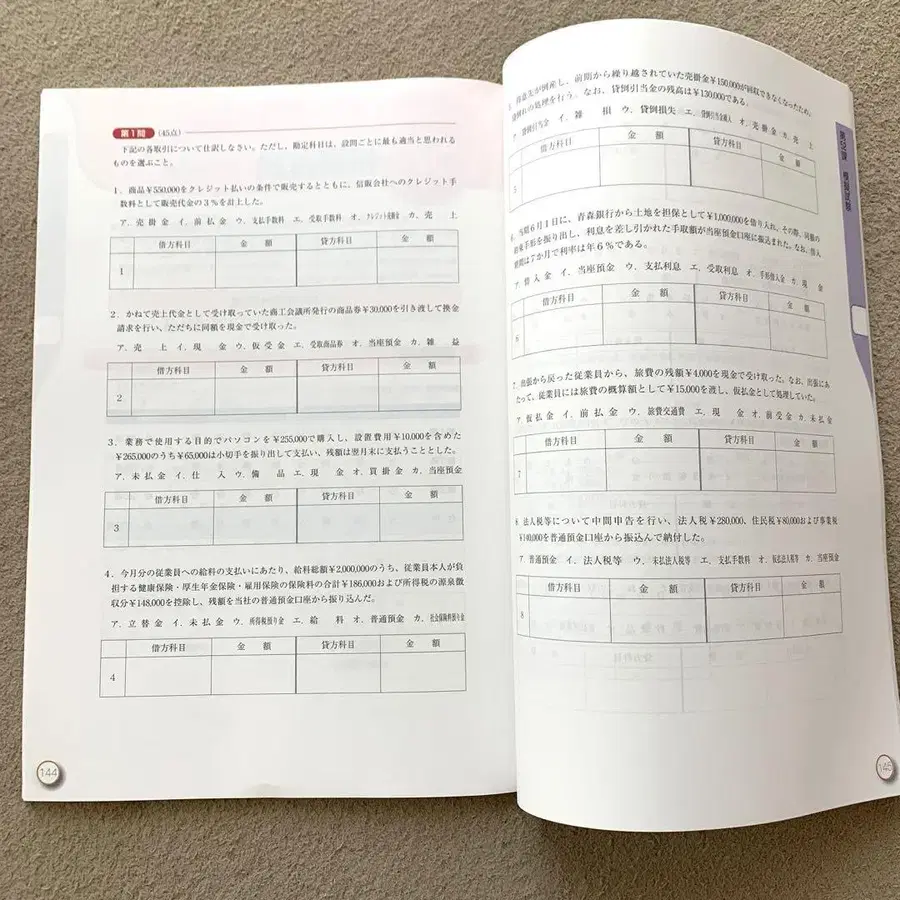 第1問 (45点)
下記の各取引について仕訳しなさい。ただし、勘定科目は、設問ごとに最も適当と思われる
ものを選ぶこと。
1. 商品¥550,000をクレジット払いの条件で販売するとともに、信販会社へのクレジット手
数料として販売代金の3%を計上した。
ア. 売掛金 イ. 前払金 ウ. 支払手数料 エ. 受取手数料 オ. クレジット売掛金 カ. 売上
借方科目 金額 貸方科目 金額
1
2. かねて売上代金として受け取っていた商工会議所発行の商品券¥30,000を引き渡して換金
請求を行い、ただちに同額を現金で受け取った。
ア. 売上 イ. 現金 ウ. 仮受金 エ. 受取商品券 オ. 当座預金 カ. 雑益
借方科目 金額 貸方科目 金額
2
3. 業務で使用する目的でパソコンを¥255,000で購入し、設置費用¥10,000を含めた
¥265,000のうち¥65,000は小切手を振り出して支払い、残額は翌月末に支払うこととした。
ア. 未払金 イ. 仕入 ウ. 備品 エ. 現金 オ. 買掛金 カ. 当座預金
借方科目 金額 貸方科目 金額
3
4. 今月分の従業員への給料の支払いにあたり、給料総額¥2,000,000のうち、従業員本人が負
担する健康保険・厚生年金保険・雇用保険の保険料の合計¥186,000および所得税の源泉徴
収分¥148,000を控除し、残額を当社の普通預金口座から振り込んだ。
ア. 立替金 イ. 未払金 ウ. 所得税預り金 エ. 給料 オ. 普通預金 カ. 社会保険料預り金
借方科目 金額 貸方科目 金額
4
144
が倒産し、前期から繰り越されていた売掛金¥150,000が回収できなくなったため、
貸倒れの処理を行う。なお、貸倒引当金の残高は¥130,000である。
ア. 貸倒引当金 イ. 雑損 ウ. 貸倒損失 エ. 貸倒引当金繰入 オ. 売掛金 カ. 売上
借方科目 金額 貸方科目 金額
5
6. 当期6月1日に、青森銀行から土地を担保として¥1,000,000を借り入れ、その際、同額の
約束手形を振り出し、利息を差し引かれた手取額が当座預金口座に振込まれた。なお、借入
期間は7か月で利率は年6%である。
ア. 借入金 イ. 当座預金 ウ. 支払利息 エ. 受取利息 オ. 手形借入金 カ. 現金
借方科目 金額 貸方科目 金額
6
7. 出張から戻った従業員から、旅費の残額¥4,000を現金で受け取った。なお、出張にあ
たって、従業員には旅費の概算額として¥15,000を渡し、仮払金として処理していた。
ア. 仮払金 イ. 前払金 ウ. 旅費交通費 エ. 現金 オ. 前受金 カ. 未払金
借方科目 金額 貸方科目 金額
7
8. 法人税等について中間申告を行い、法人税¥280,000、住民税¥80,000および事業税
¥140,000を普通預金口座から振込んで納付した。
ア. 普通預金 イ. 法人税等 ウ. 未払法人税等 エ. 支払手数料 オ. 仮払法人税等 カ. 当座預金
借方科目 金額 貸方科目 金額
8
模擬試験
145